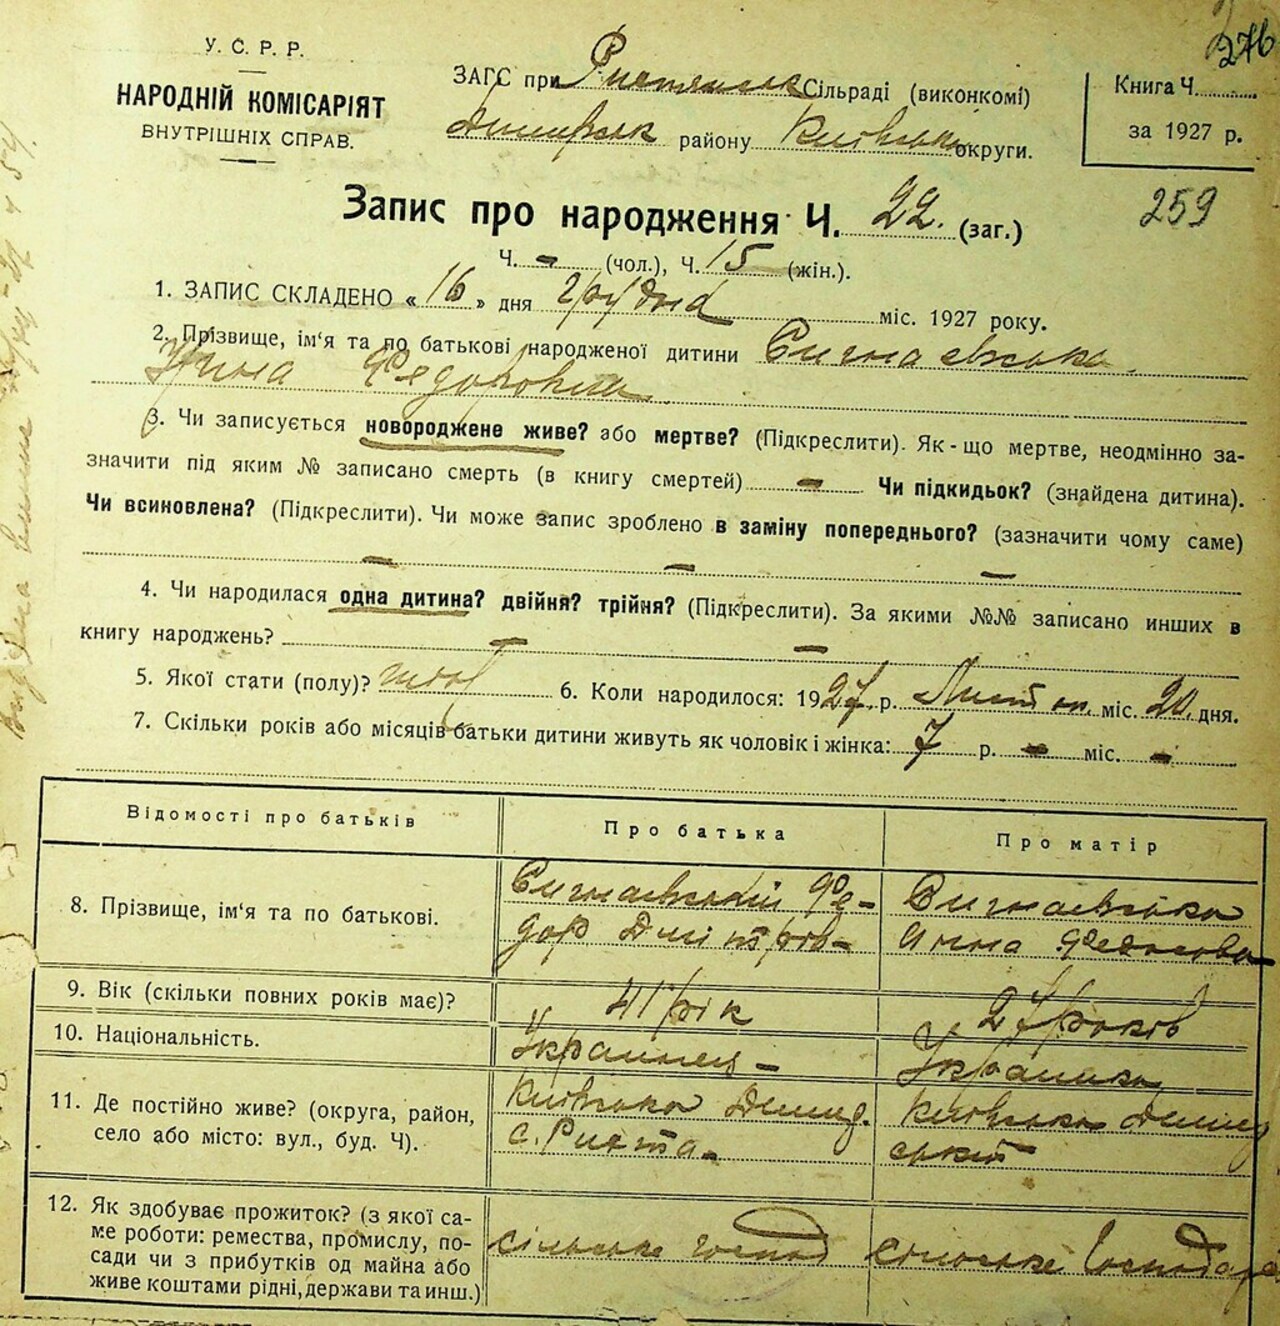 276
У. С. Р. Р.
НАРОДНІЙ КОМІСАРІЯТ
ВНУТРІШНІХ СПРАВ.
ЗАГС при Сільраді (виконкомі)
району Київська округи.
Книга Ч.
за 1927 р.
259
Запис про народження Ч. 22. (заг.)
Ч. - (чол.), Ч. 15 (жін.).
1. ЗАПИС СКЛАДЕНО « 16 » дня грудня міс. 1927 року.
2. Прізвище, ім'я та по батькові народженої дитини
Федоровна
3. Чи записується новороджене живе? або мертве? (Підкреслити). Як-що мертве, неодмінно за-
значити під яким № записано смерть (в книгу смертей) - Чи підкидьок? (знайдена дитина).
Чи всиновлена? (Підкреслити). Чи може запис зроблено в заміну попереднього? (зазначити чому саме)
- - -
4. Чи народилася одна дитина? двійня? трійня? (Підкреслити). За якими №№ записано инших в
книгу народжень? - -
5. Якої стати (полу)? 6. Коли народилося: 1927. р. Листоп. міс. 20. дня.
7. Скільки років або місяців батьки дитини живуть як чоловік і жінка: 7 р. - міс. -
Відомості про батьків
Про батька
Про матір
8. Прізвище, ім'я та по батькові.
Фе-
дор Дмітров-
Анна
9. Вік (скільки повних років має)?
41 рік
27 років
10. Національність.
Українець -
Українка
11. Де постійно живе? (округа, район,
село або місто: вул., буд. Ч).
Київська Димид.
с. Рихта -
Київська Димид
ський
12. Як здобуває прожиток? (з якої са-
ме роботи: ремества, промислу, по-
сади чи з прибутків од майна або
живе коштами рідні, держави та инш.)
сільське господ
сільське господар